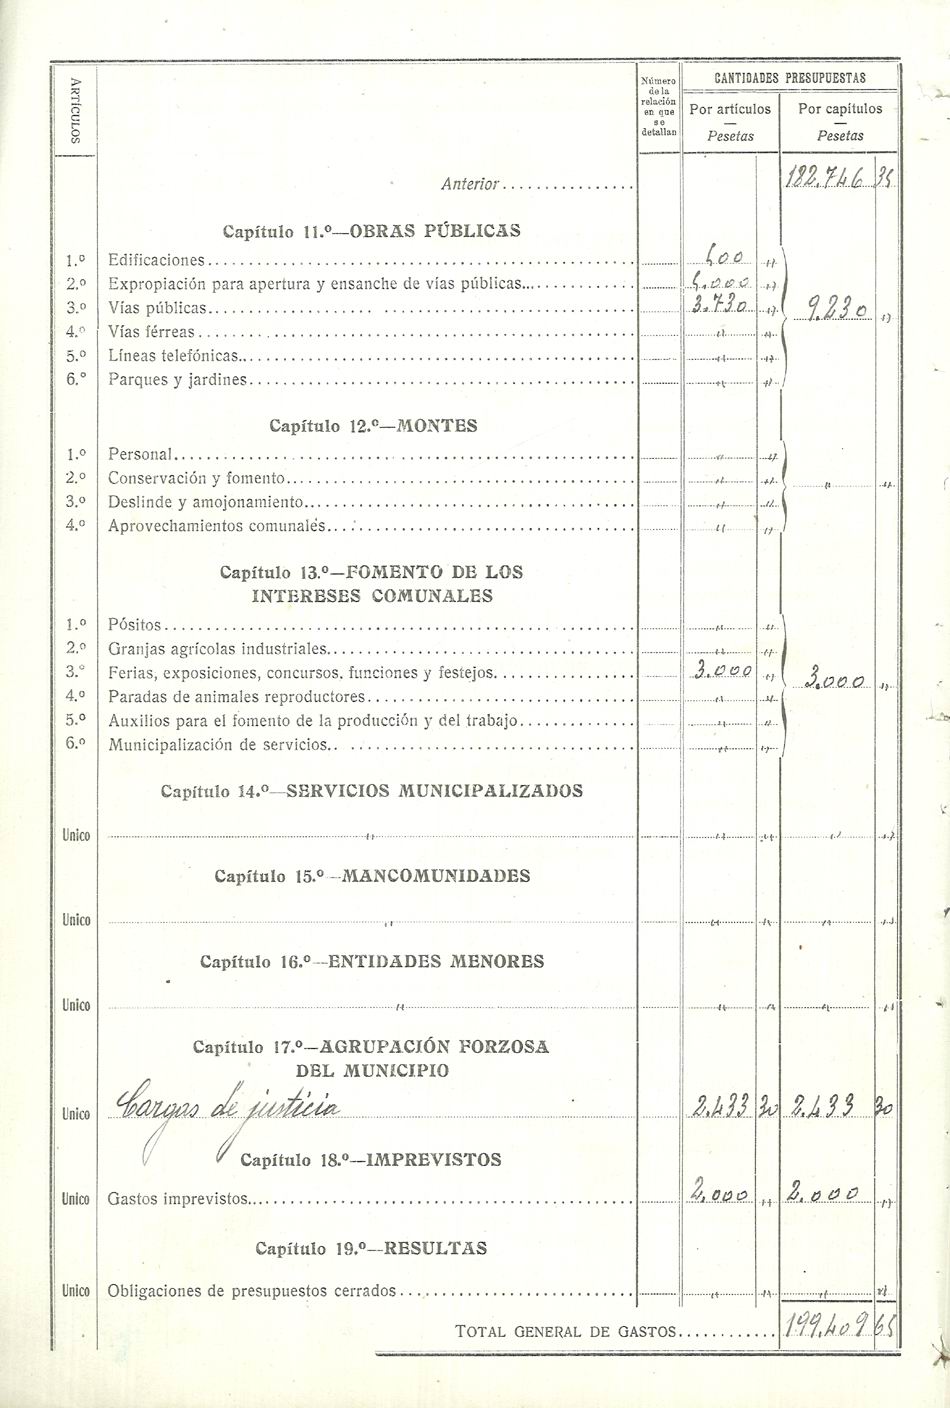 ARTÍCULOS
Número de la relación en que se detallan
CANTIDADES PRESUPUESTAS
Por artículos — Pesetas
Por capítulos — Pesetas
Anterior................ 182.746 35
Capítulo 11.º—OBRAS PÚBLICAS
1.º Edificaciones................ 500 "
2.º Expropiación para apertura y ensanche de vías públicas... 5.000 "
3.º Vías públicas................ 3.730 " 9.230 "
4.º Vías férreas................ " "
5.º Líneas telefónicas................ " "
6.º Parques y jardines................ " "
Capítulo 12.º—MONTES
1.º Personal................ " "
2.º Conservación y fomento................ " " " "
3.º Deslinde y amojonamiento................ " "
4.º Aprovechamientos comunales................ " "
Capítulo 13.º—FOMENTO DE LOS
INTERESES COMUNALES
1.º Pósitos................ " "
2.º Granjas agrícolas industriales................ " "
3.º Ferias, exposiciones, concursos, funciones y festejos................ 3.000 " 3.000 "
4.º Paradas de animales reproductores................ " "
5.º Auxilios para el fomento de la producción y del trabajo................ " "
6.º Municipalización de servicios................ " "
Capítulo 14.º—SERVICIOS MUNICIPALIZADOS
Unico " " " " "
Capítulo 15.º—MANCOMUNIDADES
Unico " " " " "
Capítulo 16.º—ENTIDADES MENORES
Unico " " " " "
Capítulo 17.º—AGRUPACIÓN FORZOSA
DEL MUNICIPIO
Unico Cargas de justicia 2.433 30 2.433 30
Capítulo 18.º—IMPREVISTOS
Unico Gastos imprevistos................ 2.000 " 2.000 "
Capítulo 19.º—RESULTAS
Unico Obligaciones de presupuestos cerrados................ " " " "
TOTAL GENERAL DE GASTOS............ 199.409 65